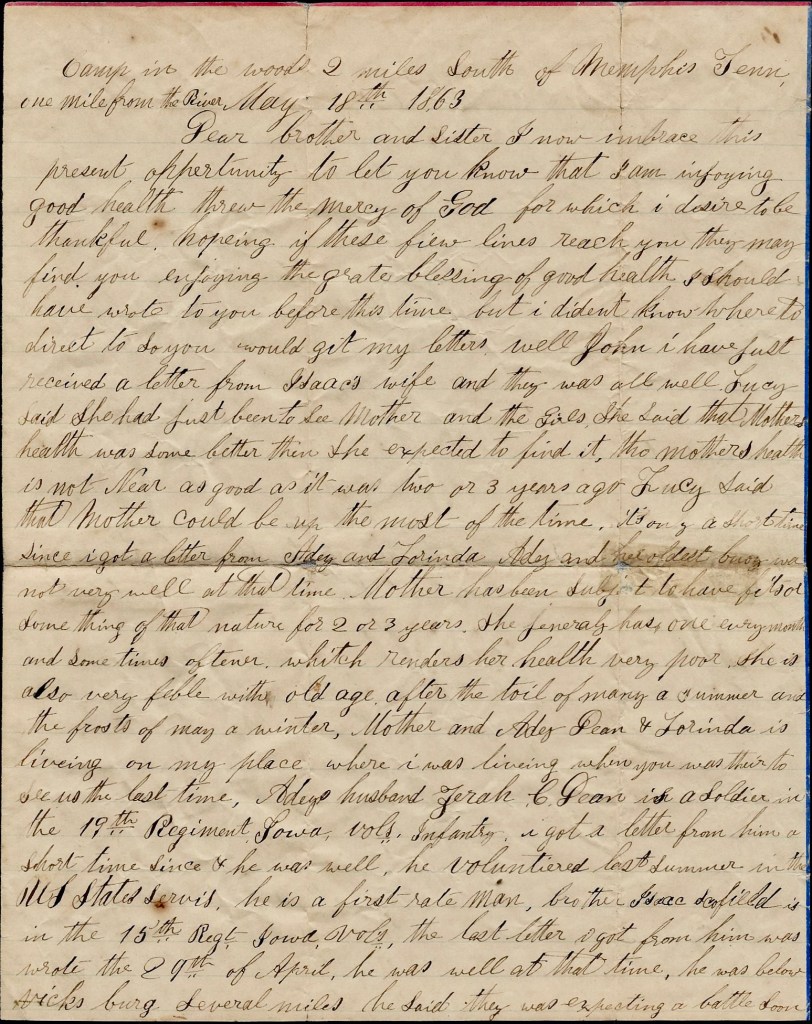 Camp in the woods 2 miles South of Memphis Tenn,
one mile from the River, May 18th 1863
Dear brother and Sister I now imbrace this
present oppertunity to let you know that I am injoying
good health threw the mercy of God for which i desire to be
thankful. hopeing if these fiew lines reach you they may
find you enjoying the grate blessing of good health I Should
have wrote to you before this time but i dident know where to
direct to so you would git my letters, well John i have just
received a letter from Isaac's wife and they was all well. Lucy
said She had just been to See Mother and the Girls, She Said that Mothers
health was some better then She expected to find it, tho mothers health
is not Near as good as it was two or 3 years ago Lucy Said
that Mother could be up the most of the time. its only a short time
since i got a letter from Adey and Lorinda Adey and her oldest buoy was
not very well at that time. Mother has been Subject to have fits or
Some thing of that nature for 2 or 3 years. She generaly has one evry month
and Some times oftener. whitch renders her health very poor. She is
also very feble withe old age. after the toil of many a Summer and
the frosts of may a winter, Mother and Adey Dean & Lorinda is
liveing on my place where i was liveing when you was their to
See us the last time, Adeys husband Zerah C. Dean is a Soldier in
the 19th Regiment, Iowa, vols. Infantry. i got a letter from him a
Short time Since & he was well, he voluntiered last Summer in the
US States Servis, he is a first rate man, brother Isaac Scofield is
in the 15th Regt Iowa, Vols, the last letter i got from him was
wrote the 29th of April, he was well at that time, he was below
vicks burg Several miles he Said they was expecting a battle Soon